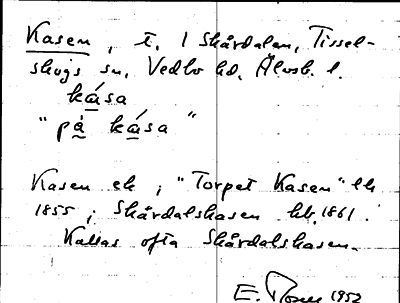 Kasen, t. I Skårdalen, Tissel-
skogs sn, Vedbo hd, Älvsb. l.
kása
"på kása"
Kasen ek; "Torpet Kasen" lk
1855; Skårdalskasen hk. 1861.
Kallas ofta Skårdalskasen.
E. 1952